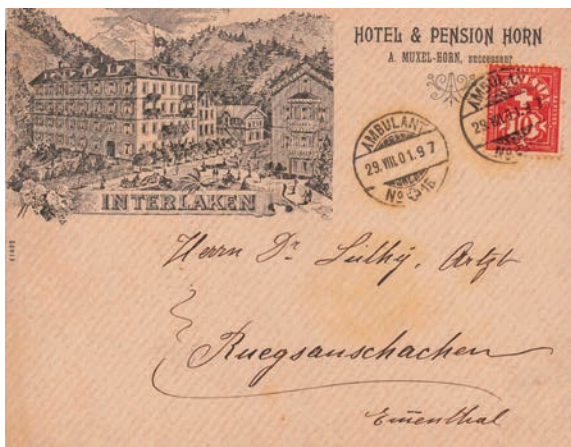 HOTEL & PENSION HORN
A. MUXEL-HORN, successeur
INTERLAKEN
AMBULANT
29.VIII.01.97
No
AMBULANT
29.VIII.01
No
Herrn Dr. Lüthy, Artzt
Ruegsauschachen
Ementhal